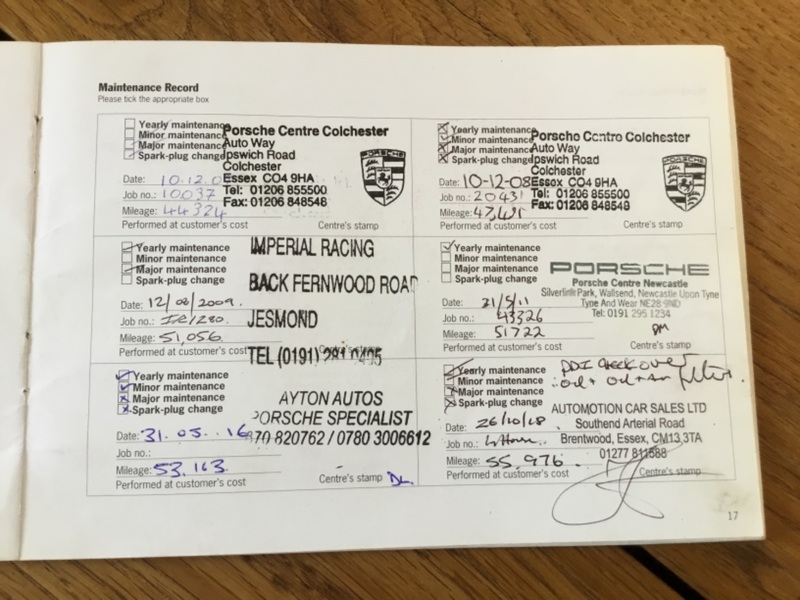 Maintenance Record
Please tick the appropriate box
Yearly maintenance
Minor maintenance
Major maintenance
Spark-plug change
Porsche Centre Colchester
Auto Way
Ipswich Road
Colchester
Essex CO4 9HA
Tel: 01206 855500
Fax: 01206 848548
PORSCHE
Date: 10.12.0
Job no.: 10037
Mileage: 44324
Performed at customer's cost
Centre's stamp
Yearly maintenance
Minor maintenance
Major maintenance
Spark-plug change
Porsche Centre Colchester
Auto Way
Ipswich Road
Colchester
Essex CO4 9HA
Tel: 01206 855500
Fax: 01206 848549
PORSCHE
Date: 10-12-08
Job no.: 20431
Mileage:
Performed at customer's cost
Centre's stamp
Yearly maintenance
Minor maintenance
Major maintenance
Spark-plug change
IMPERIAL RACING
BACK FERNWOOD ROAD
JESMOND
TEL (0191)
Date: 12/02/2009.
Job no.: IR/280.
Mileage: 51,056.
Performed at customer's cost
Centre's stamp
Yearly maintenance
Minor maintenance
Major maintenance
Spark-plug change
PORSCHE
Porsche Centre Newcastle
Silverlink Park, Wallsend, Newcastle Upon Tyne
Tyne And Wear NE28 9ND
Tel: 0191 295 1234
Date: 31/5/11
Job no.: 43326
Mileage: 51722
Performed at customer's cost
Centre's stamp
Yearly maintenance
Minor maintenance
Major maintenance
Spark-plug change
AYTON AUTOS
PORSCHE SPECIALIST
870 820762 / 0780 3006612
Date: 31.05..16
Job no.:
Mileage: 53.163.
Performed at customer's cost
Centre's stamp DL
Yearly maintenance
Minor maintenance
Major maintenance
Spark-plug change
PDI Check over
oil + oil + Air filter.
AUTOMOTION CAR SALES LTD
Southend Arterial Road
Brentwood, Essex, CM13 3TA
01277 811588
Date: 26/10/18
Job no.:
Mileage: 55,976.
Performed at customer's cost
Centre's stamp
17